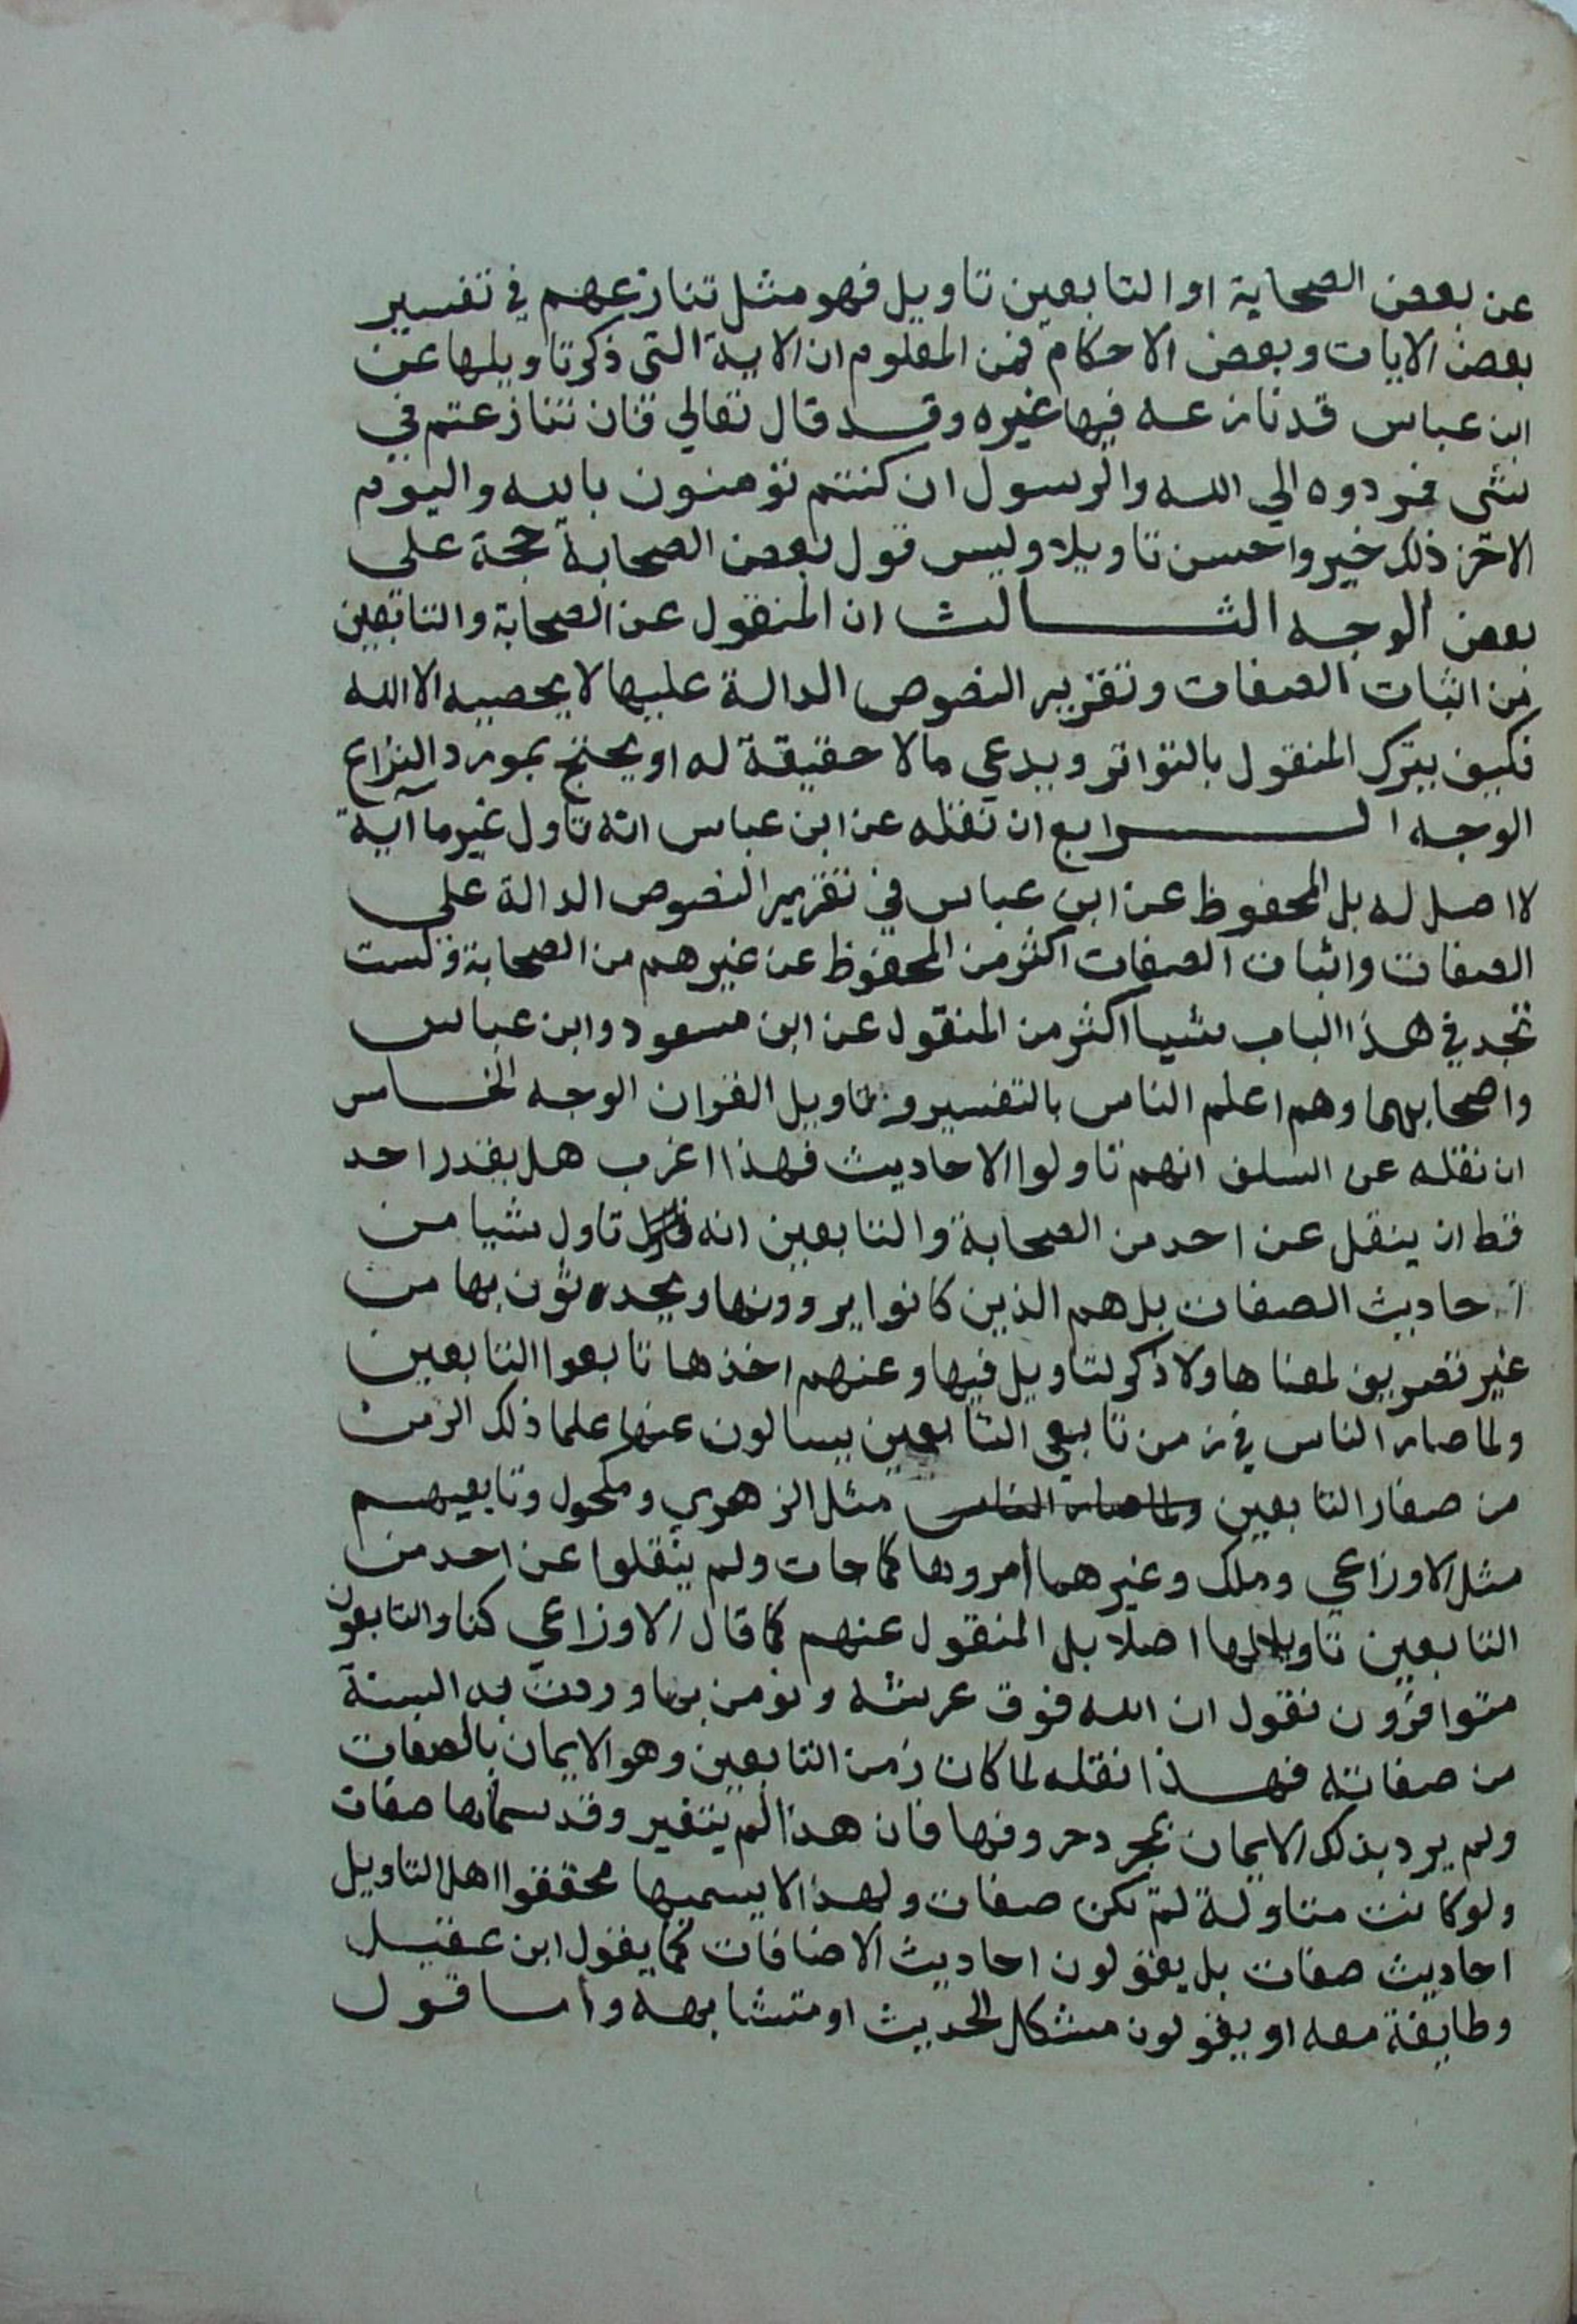 عن بعض الصحابة او التابعين تاويل فهو مثل تنازعهم في تفسير
بعض الايات وبعض الاحكام فمن المعلوم ان الاية التي ذكر تاويلها عن
ابن عباس قد نازعه فيها غيره وقد قال تعالي فان تنازعتم في
شي فردوه الي الله والرسول ان كنتم تؤمنون بالله واليوم
الاخر ذلك خير واحسن تاويلا وليس قول بعض الصحابة حجة على
بعض الوجه الثالث ان المنقول عن الصحابة والتابعين
من اثبات الصفات وتقرير النصوص الدالة عليها لا يحصيه الا الله
فكيف يترك المنقول بالتواتر ويدعي مالا حقيقة له او يحتج بمورد النزاع
الوجه الرابع ان نقله عن ابن عباس انه تاول غير ما آية
لا اصل له بل المحفوظ عن ابن عباس في تقرير النصوص الدالة علي
الصفات واثبات الصفات اكثر من المحفوظ عن غيرهم من الصحابة ولست
تجد في هذا الباب شيا اكثر من المنقول عن ابن مسعود وابن عباس
واصحابهما وهم اعلم الناس بالتفسير وتاويل القران الوجه الخامس
ان نقله عن السلف انهم تاولوا الاحاديث فهذا اغرب هل يقدر احد
قط ان ينقل عن احد من الصحابة والتابعين انه تاول شيا من
احاديث الصفات بل هم الذين كانوا يروونها ويحدثون بها من
غير تصريف لمعناها ولا ذكر لتاويل فيها وعنهم اخذها تابعوا التابعين
ولما صار الناس في زمن تابعي التابعين يسالون عنها علما ذلك الزمن
من صغار التابعين ولما صار الناس مثل الزهري ومكحول وتابعيهم
مثل الاوزاعي وملك وغيرهما امروها كما جات ولم ينقلوا عن احد من
التابعين تاويلا لها اصلا بل المنقول عنهم كما قال الاوزاعي كنا والتابعون
متوافرون نقول ان الله فوق عرشه ونومن بما وردت به السنة
من صفاته فهذا نقله لما كان زمن التابعين وهو الايمان بالصفات
ولم يرد بذلك الايمان بمجرد حروفها فان هذا لم يتغير وقد سماها صفات
ولو كانت متاولة لم تكن صفات ولهذا لا يسميها محققوا اهل التاويل
احاديث صفات بل يقولون احاديث الاضافات كما يقول ابن عقيل
وطايفة معه او يقولون مشكل الحديث او متشابهه واما قول